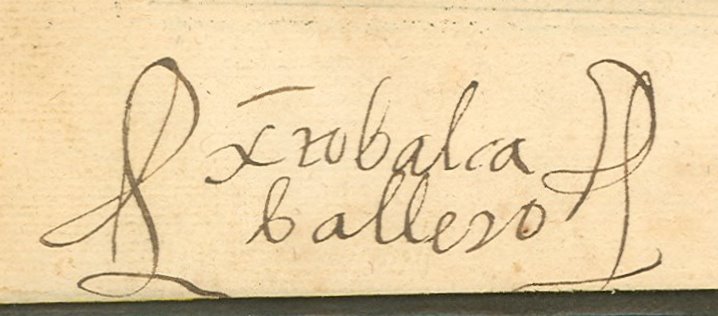 x̄robalca
ballero